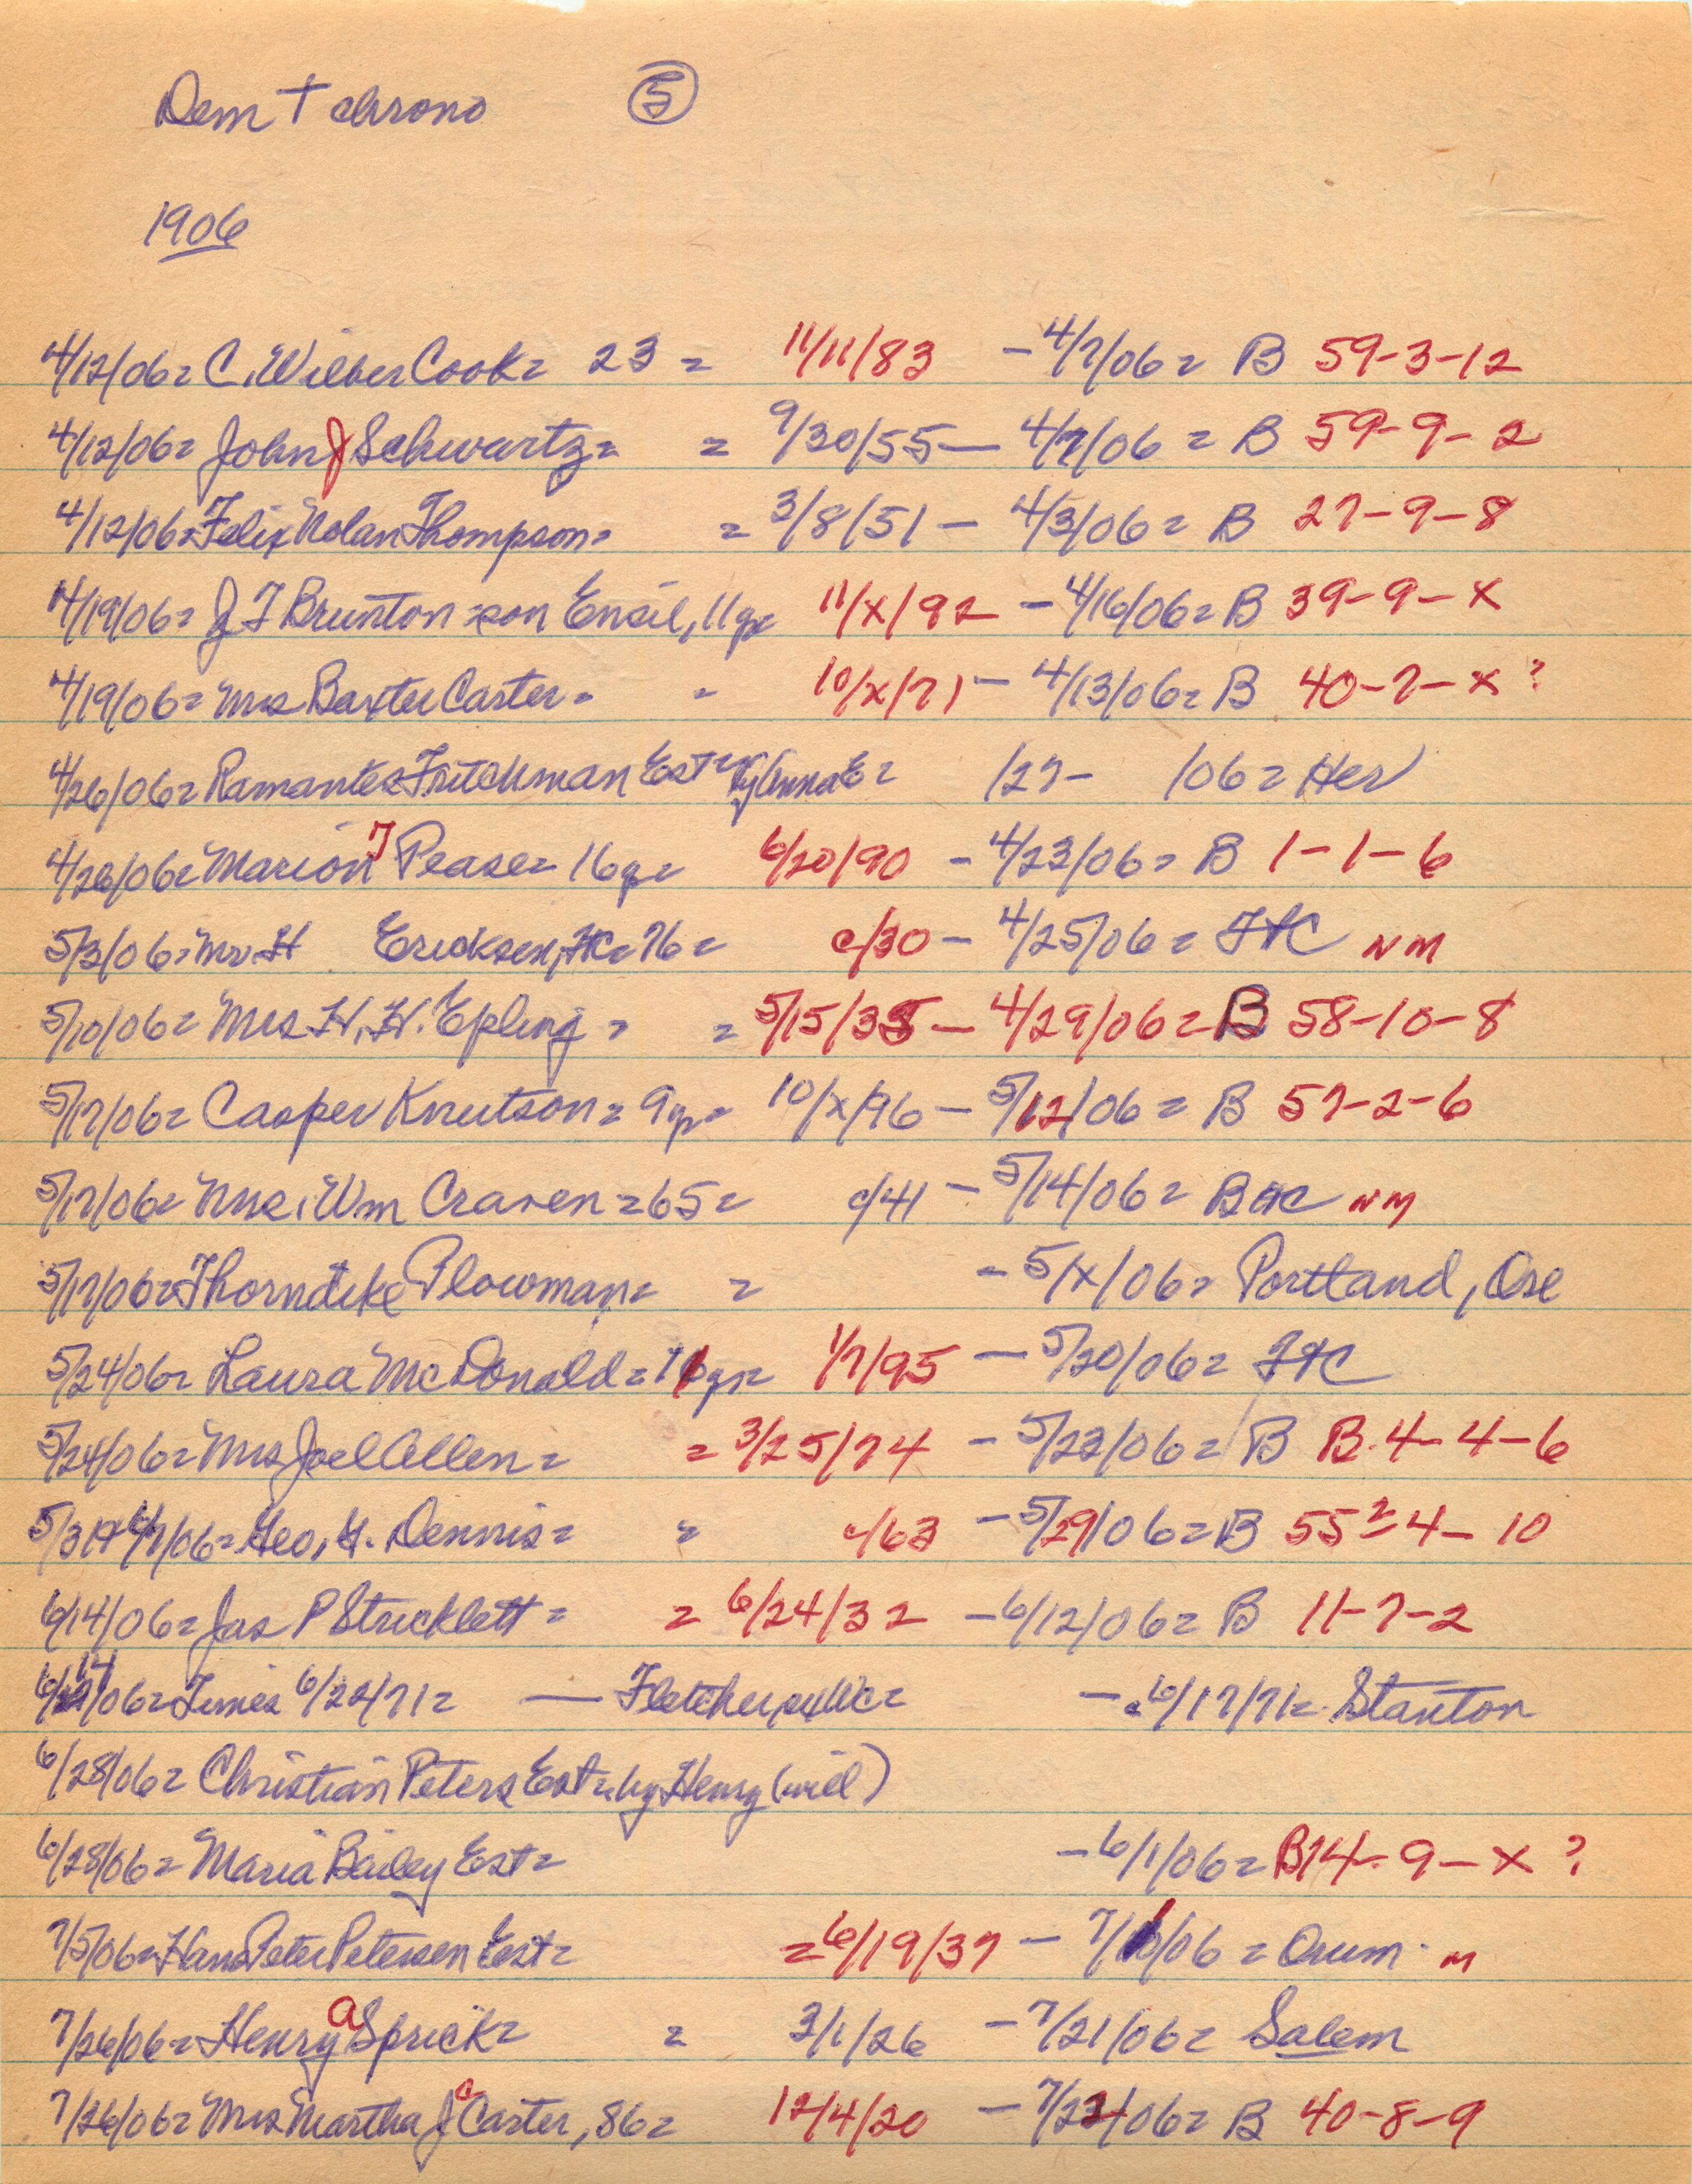 Dem + chrono ⑤
1906
4/12/06= C. Wilber Cook= 23 = 11/11/83 - 4/7/06= B 59-3-12
4/12/06= John J Schwartz= = 9/30/55 - 4/7/06 = B 59-9-2
4/12/06= Felix Nolan Thompson= = 3/8/51 - 4/3/06= B 27-9-8
4/19/06= J F Brunton =son Encil, 11yr= 11/x/92 - 4/16/06= B 39-9-x
4/19/06= Mrs Baxter Carter= = 10/x/71 - 4/13/06= B 40-7-x?
4/26/06= Fritchman Est= by Anna E= /27- /06= Her
4/26/06= Marion J Pease= 16yr= 6/20/90 - 4/23/06= B 1-1-6
5/3/06= H Ericksen, HC= 76= c/30 - 4/25/06= FtC NM
5/10/06= Mrs H. H. Epling = = 5/15/35 - 4/29/06= B 58-10-8
5/17/06= Casper Knutson= 9yr= 10/x/96 - 5/12/06= B 57-2-6
5/17/06= Mrs. Wm Craven=65= c/41 - 5/14/06= NM
5/17/06= Thorndike Plowman= = - 5/x/06= Portland, Ore
5/24/06= Laura McDonald= 1/7/95 - 5/20/06= FtC
5/24/06= Mrs Joel Allen= = 3/25/74 - 5/23/06= B B-4-4-6
5/31+6/7/06= Geo, H. Dennis= = c/63 - 5/29/06= B 55²-4-10
6/14/06= Jas P Stricklett= = 6/24/32 - 6/12/06= B 11-7-2
6/14/06= Times 6/22/71= — Fletcher, - 6/17/71= Stanton
6/28/06= Christian Peters Est= by Henry (will)
6/28/06= Maria Bailey Est= - 6/1/06= B14-9-x ?
7/5/06= Hans Peter Petersen Est= = 6/19/37 - 7/1/06 = Orum M
7/26/06= Henry A Sprick= = 3/1/26 - 7/21/06= Salem
7/26/06= Mrs Martha J C Carter, 86= 12/4/20 - 7/22/06= B 40-8-9